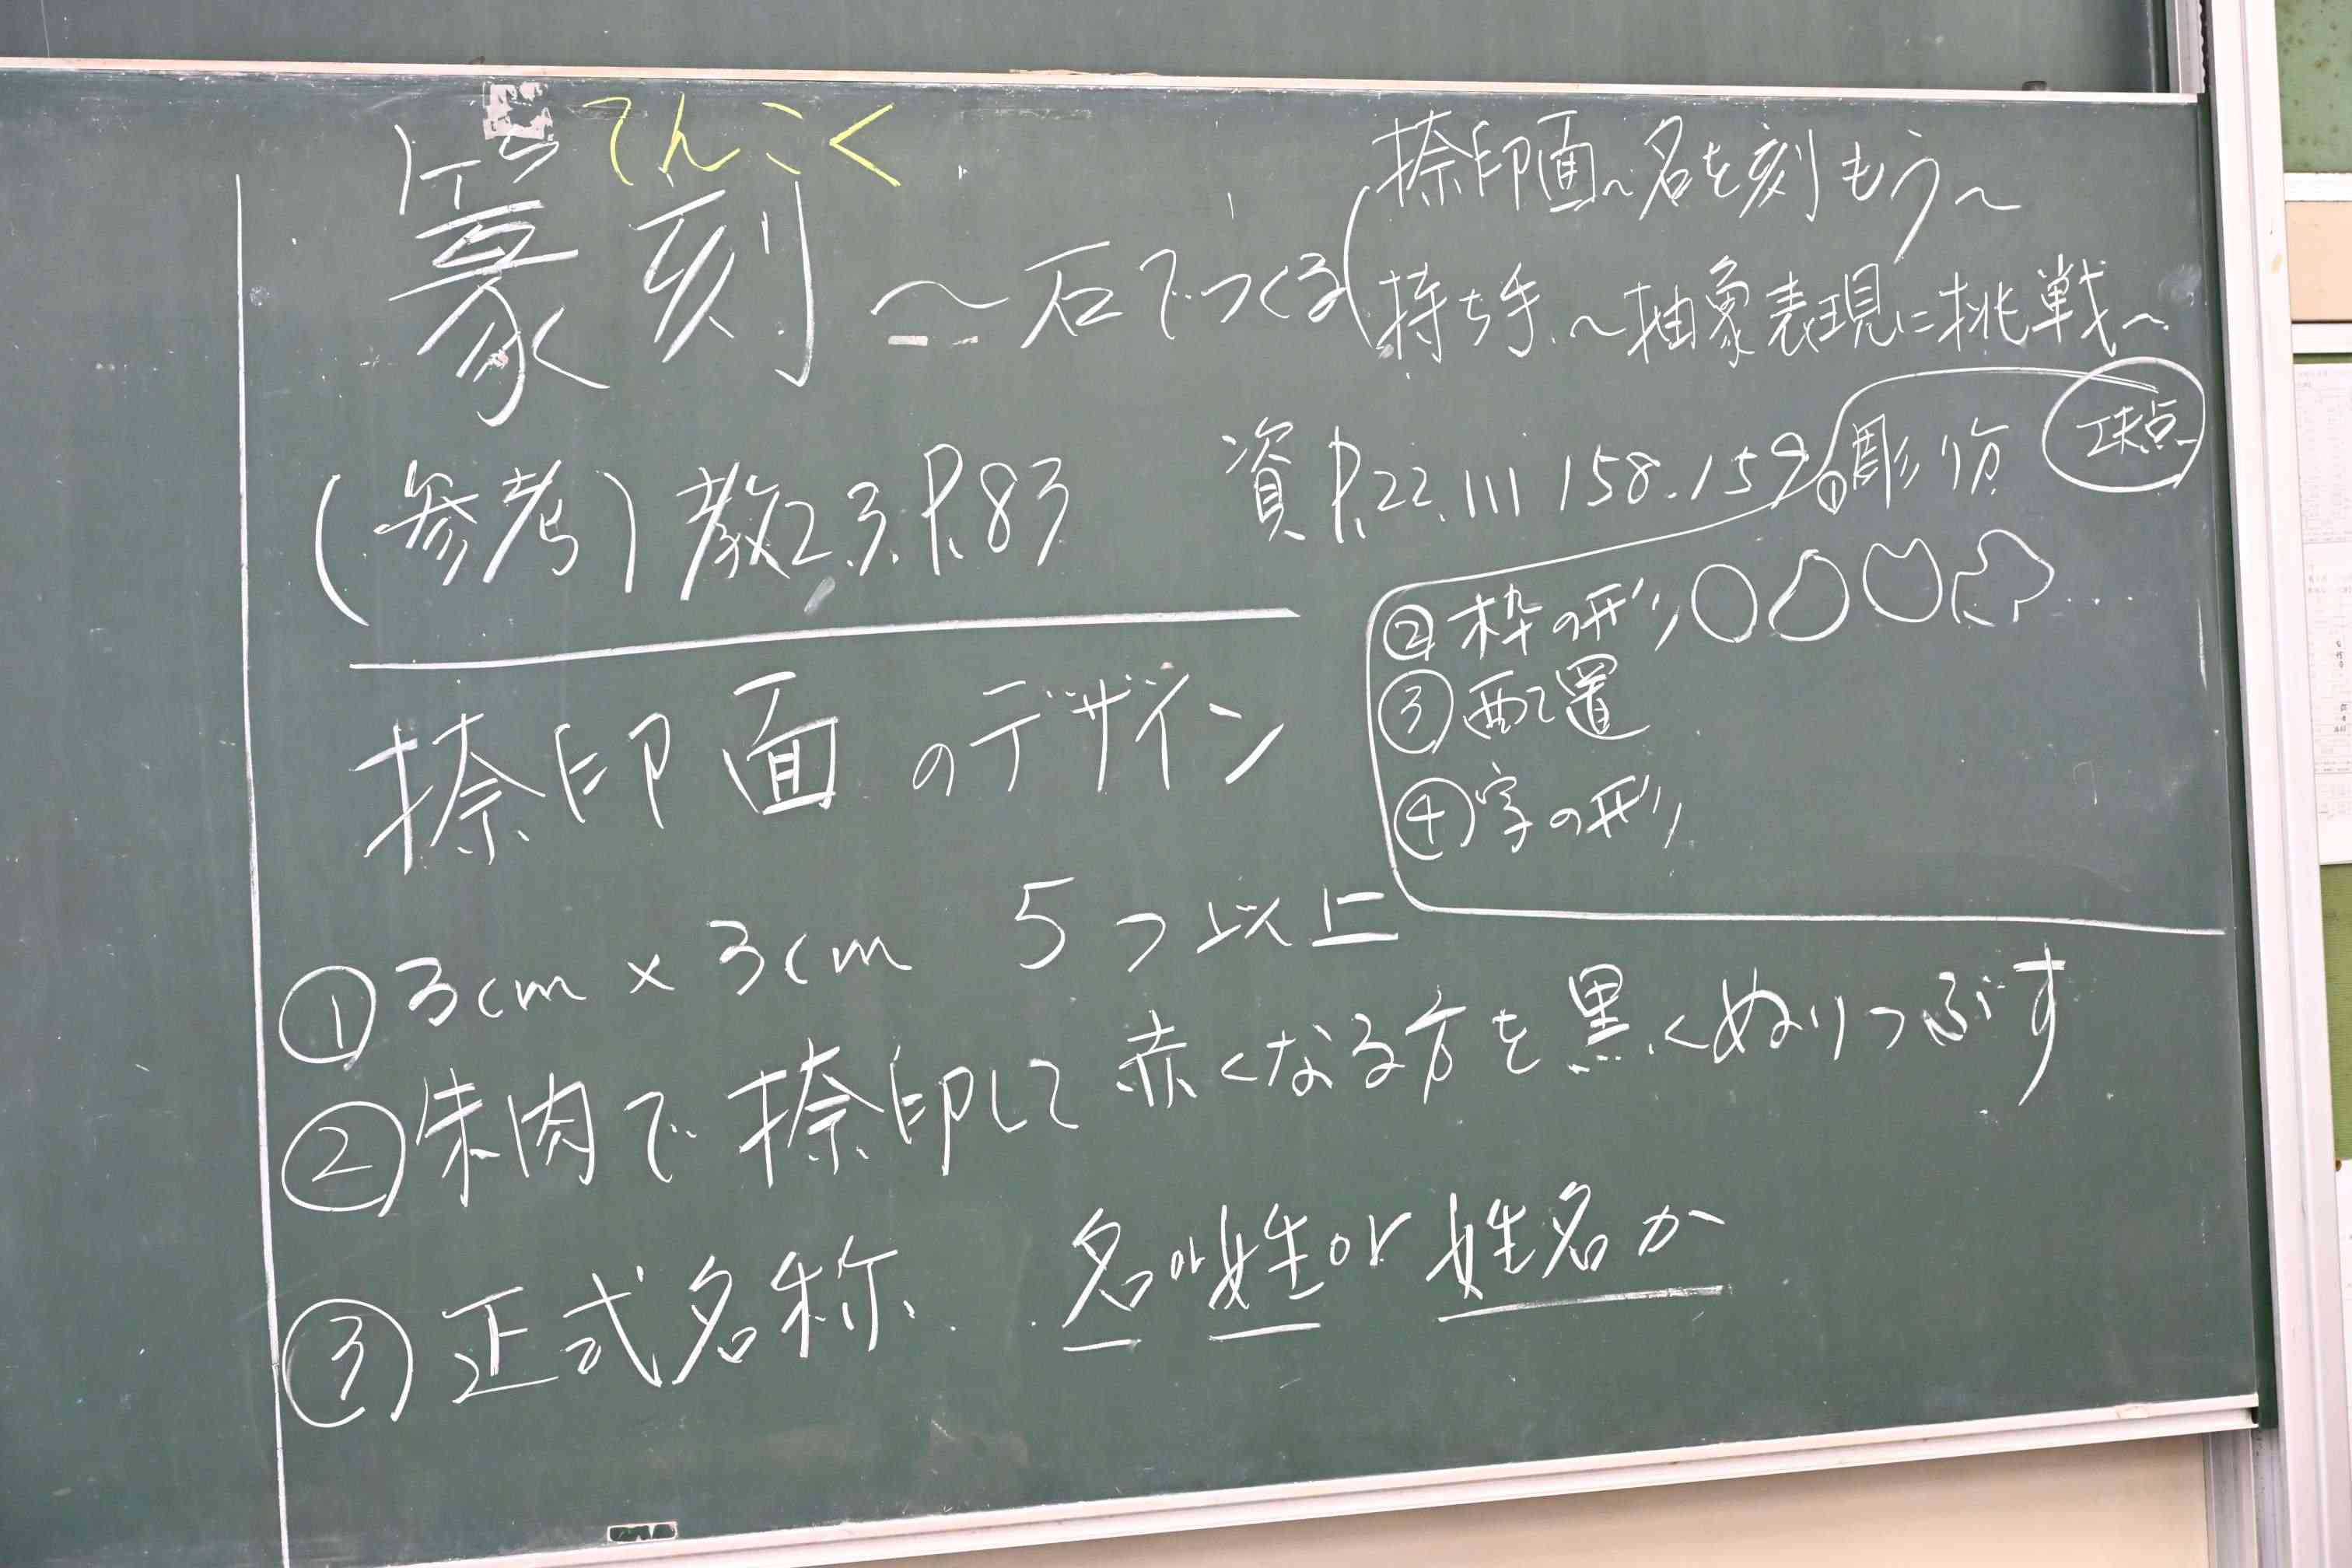 てんこく
篆刻 〜石でつくる
捺印面〜名を刻もう〜
持ち手〜抽象表現に挑戦〜
(参考) 教2.3.P.83 資P.22.111 158.159
工夫点
①彫り方
②枠の形
③配置
④字の形
捺印面のデザイン
①3cm×3cm 5つ以上
②朱肉で捺印して赤くなる方を黒くぬりつぶす
③正式名称 名or姓or姓名か